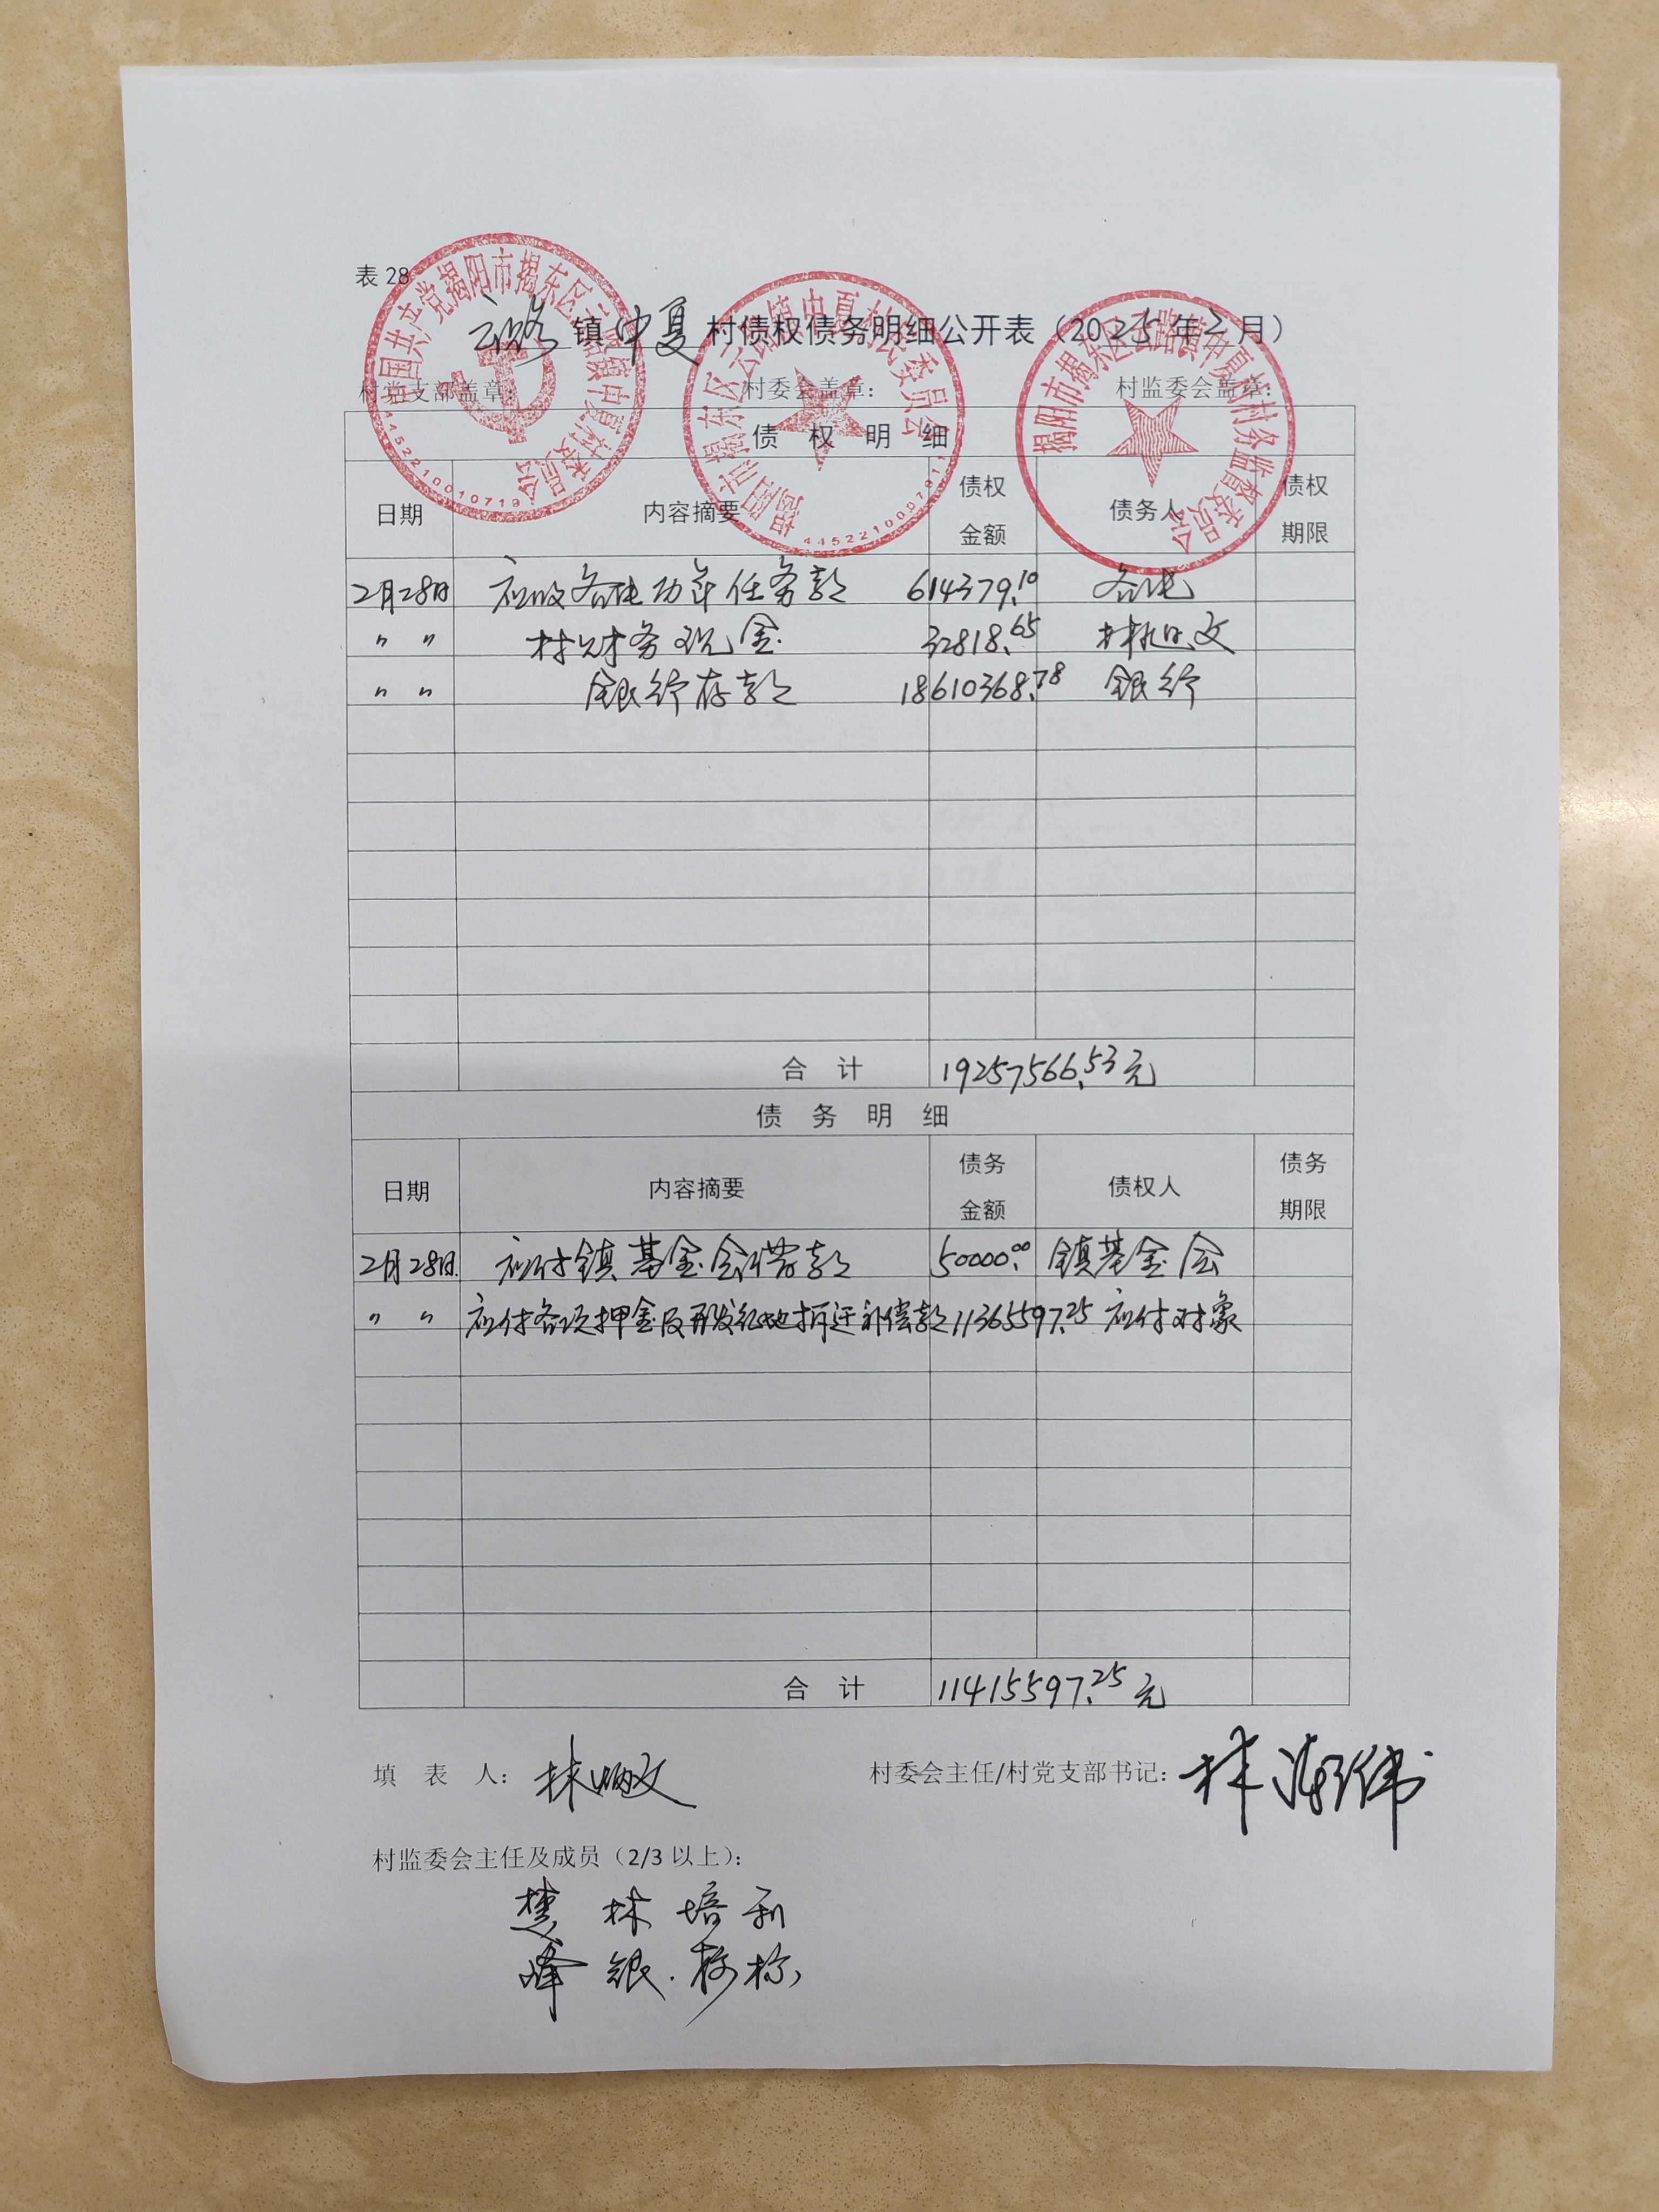 表 28
云路镇中夏村债权债务明细公开表（2025年2月）
村党支部盖章： 村委会盖章： 村监委会盖章：
中国共产党揭阳市揭东区云路镇中夏村委员会
4452210010719
揭阳市揭东区云路镇中夏村村民委员会
揭阳市揭东区云路镇中夏村村务监督委员会
债 权 明 细
日期 内容摘要 债权金额 债务人 债权期限
2月28日 应收各 任务款 614379.10
〃 〃 村财务现金 32818.65 林 文
〃 〃 银行存款 18610368.78 银行
合 计 19257566.53元
债 务 明 细
日期 内容摘要 债务金额 债权人 债务期限
2月28日 应付镇基金会借款 50000.00 镇基金会
〃 〃 应付各项押金及开发征地拆迁补偿款 11365597.25 应付对象
合 计 11415597.25元
填 表 人：林炳文 村委会主任/村党支部书记：林 伟
村监委会主任及成员（2/3 以上）：
林培利
银